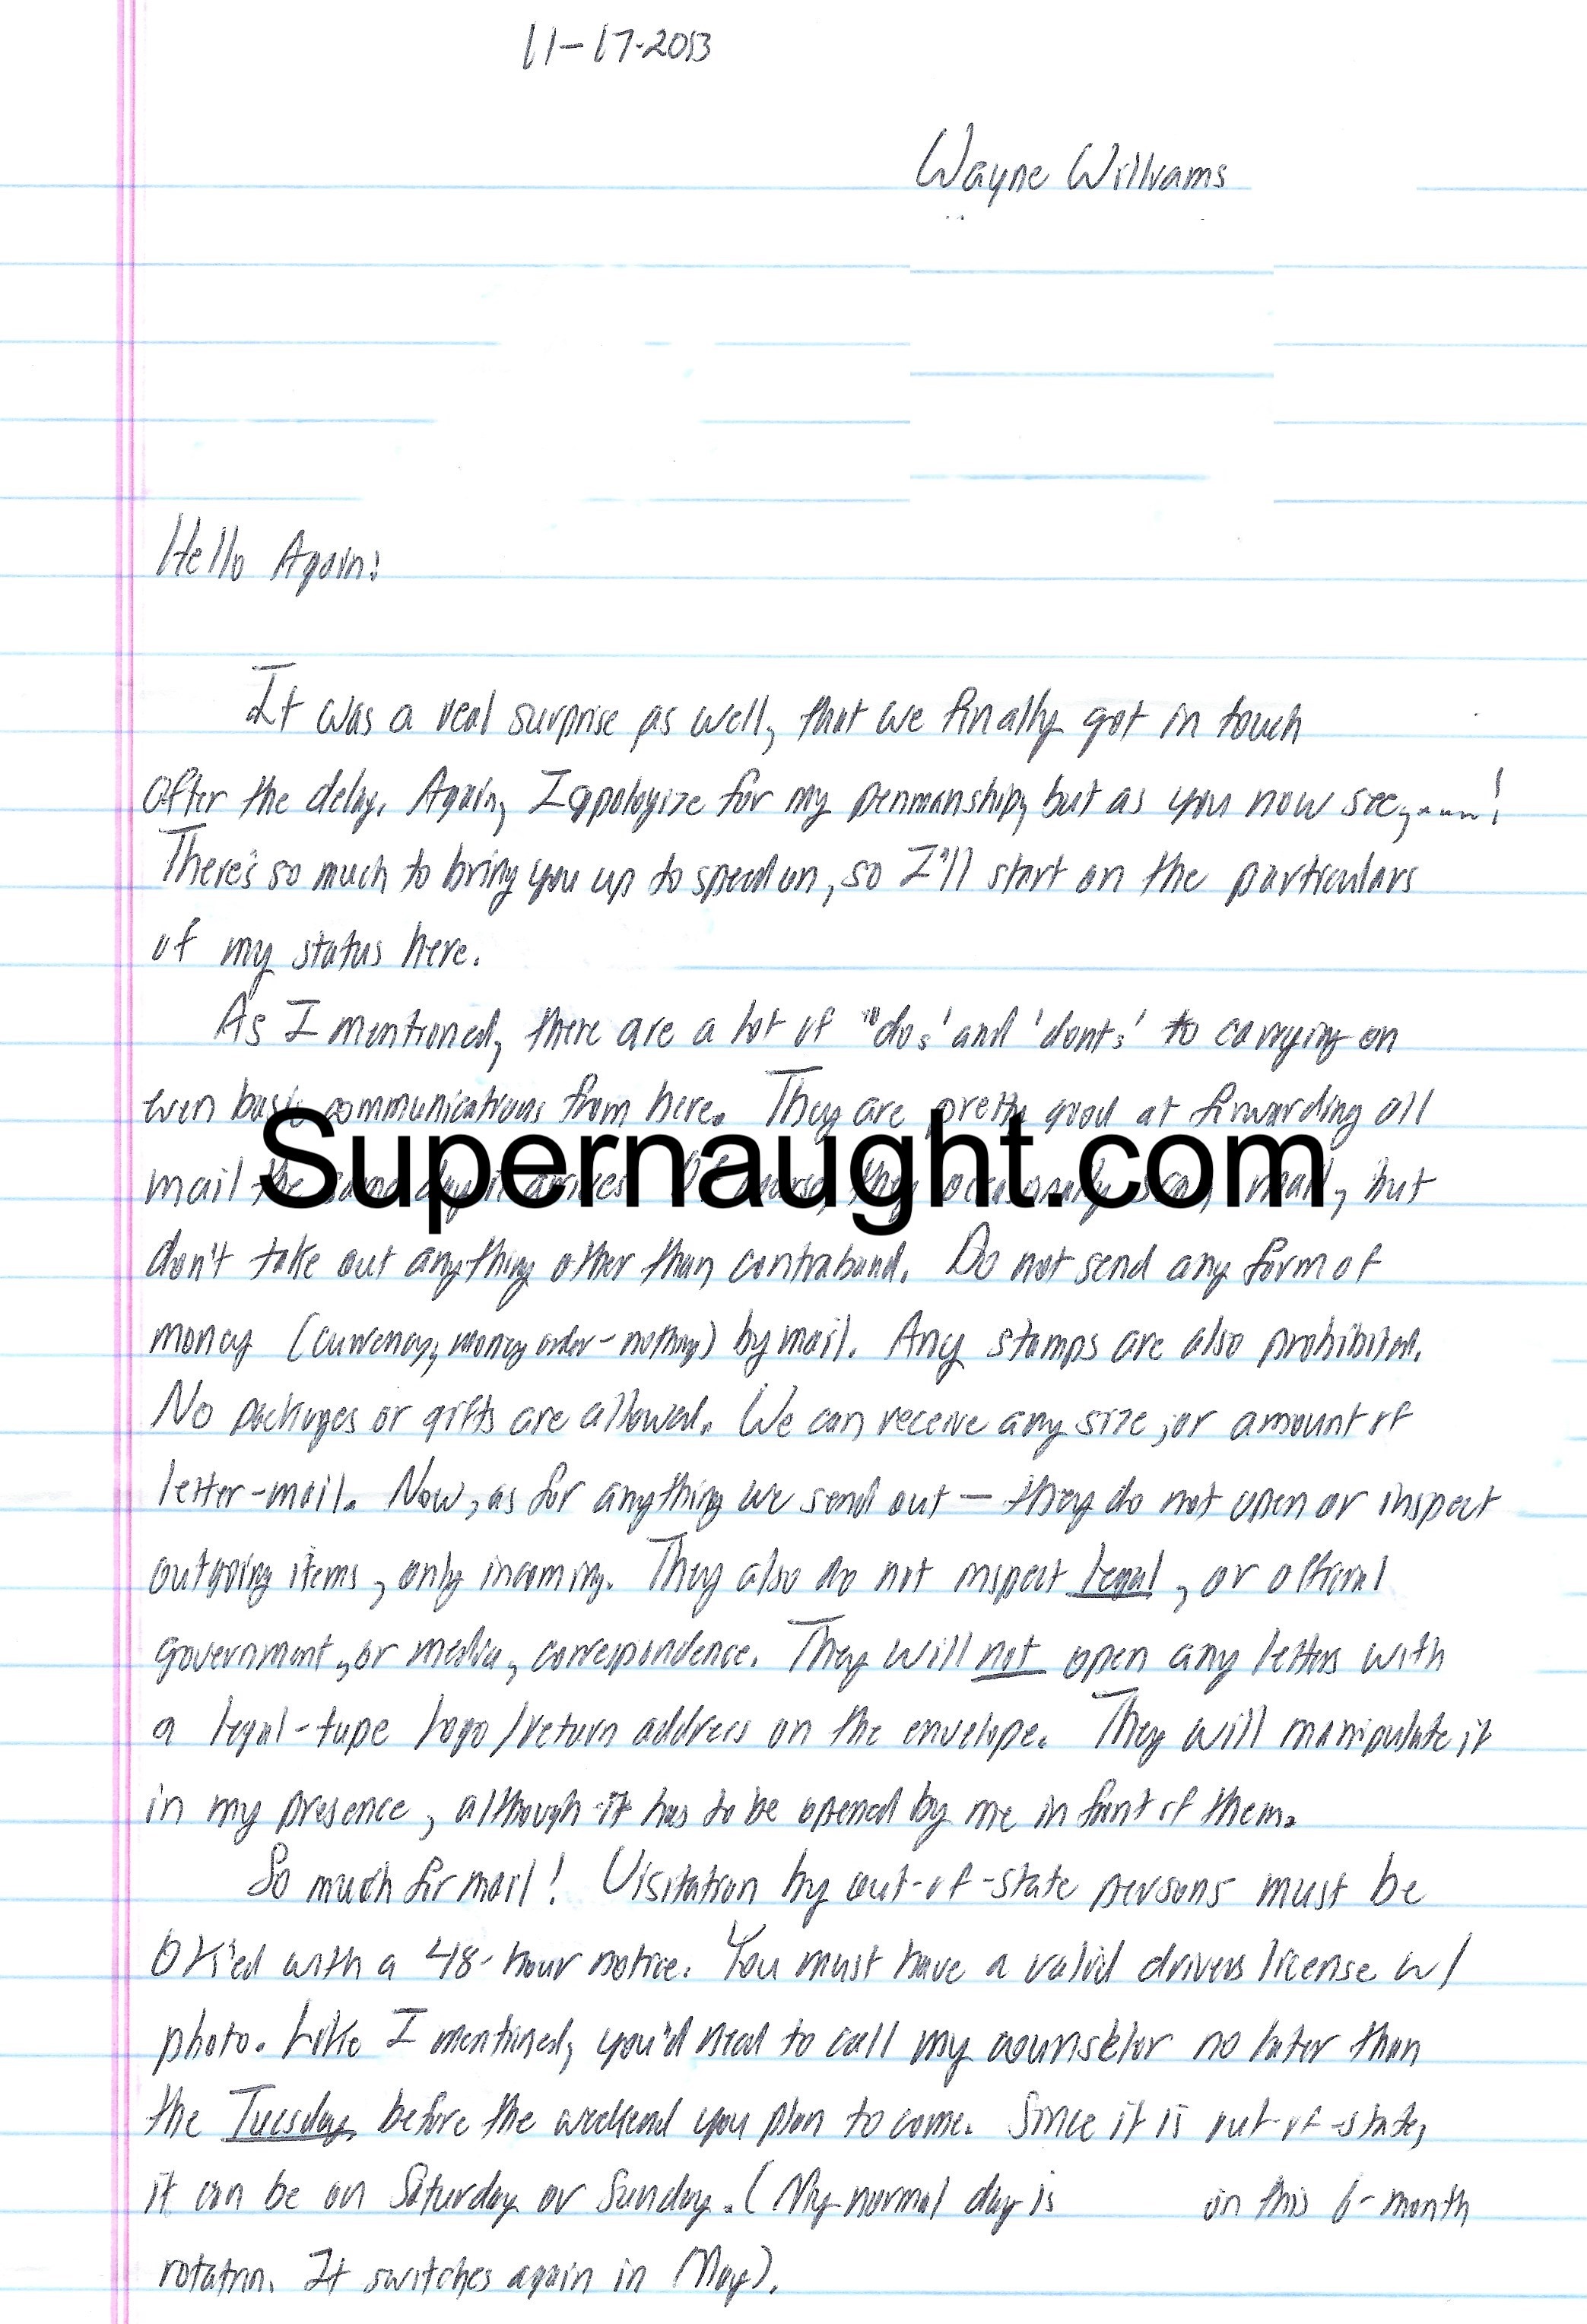 11-17-2013
Wayne Williams
Hello Again!
It was a real surprise as well, that we finally got in touch
after the delay. Again, I apologize for my penmanship, but as you now see,....!
There's so much to bring you up to speed on, so I'll start on the particulars
of my status here.
As I mentioned, there are a lot of "do's' and 'dont's' to carrying on
even basic communications from here. They are pretty good at forwarding all
mail the same day it arrives. Of course, they occasionally scan mail, but
Supernaught.com
don't take out anything other than contraband. Do not send any form of
money (currency, money order - nothing) by mail. Any stamps are also prohibited.
No packages or gifts are allowed. We can receive any size, or amount of
letter-mail. Now, as for anything we send out — they do not open or inspect
outgoing items, only incoming. They also do not inspect legal, or official
government, or media, correspondence. They will not open any letters with
a legal-type logo/return address on the envelope. They will manipulate it
in my presence, although it has to be opened by me in front of them.
So much for mail! Visitation by out-of-state persons must be
OK'ed with a 48-hour notice. You must have a valid drivers license w/
photo. Like I mentioned, you'd need to call my counselor no later than
the Tuesday before the weekend you plan to come. Since it is out-of-state,
it can be on Saturday or Sunday. (My normal day is on this 6-month
rotation. It switches again in May).